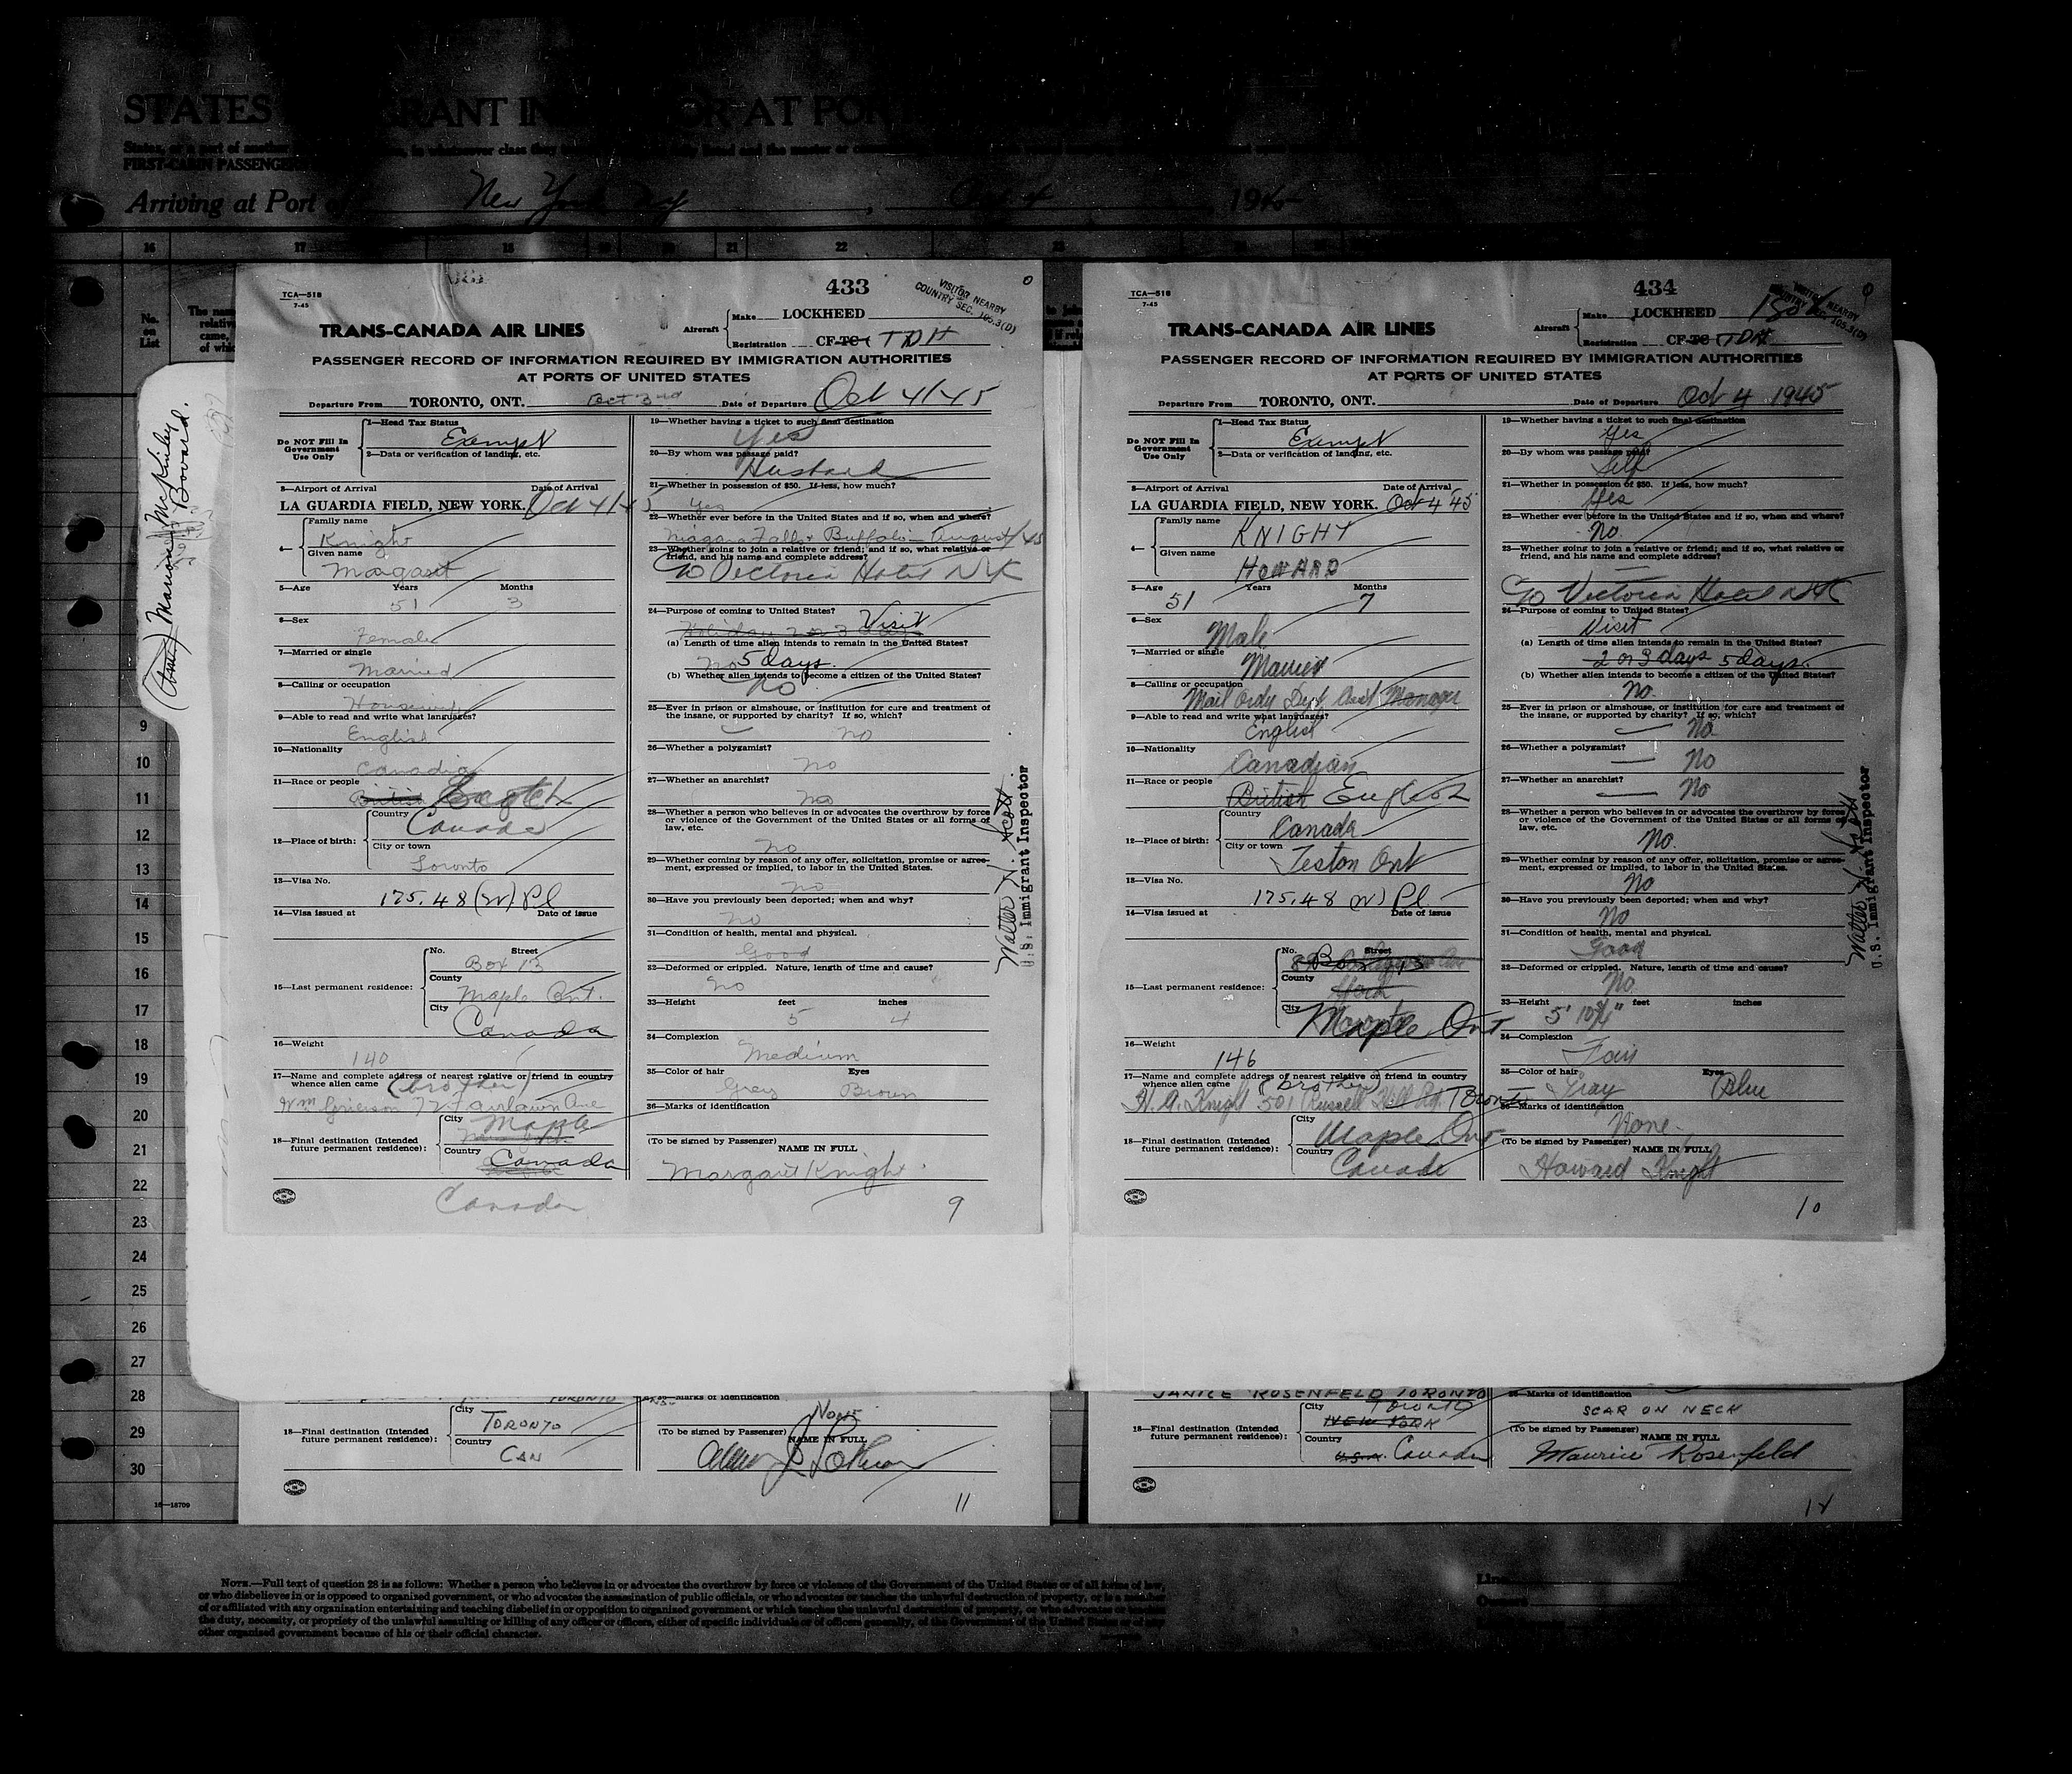 Arriving at Port of New York NY, Oct 4, 1945
16 17 18 20 21 22 23
No. on List
Marion McKinley
Bovard.
9
10
11
12
13
14
15
16
17
18
19
20
21
22
23
24
25
26
27
28
29
30
16—18709
433
TCA—518
7-45
VISITOR NEARBY
COUNTRY SEC. 105.3(D)
TRANS-CANADA AIR LINES
Aircraft Make LOCKHEED
Registration CF-TC TDH
PASSENGER RECORD OF INFORMATION REQUIRED BY IMMIGRATION AUTHORITIES
AT PORTS OF UNITED STATES
Departure From TORONTO, ONT. Oct 3rd Date of Departure Oct 4/45
Do NOT Fill In Government Use Only
1—Head Tax Status
Exempt
2—Data or verification of landing, etc.
3—Airport of Arrival Date of Arrival
LA GUARDIA FIELD, NEW YORK. Oct 4/45
4— Family name
Knight
Given name
Margaret
5—Age Years Months
51 3
6—Sex
Female
7—Married or single
Married
8—Calling or occupation
Housewife
9—Able to read and write what languages?
English
10—Nationality
Canadian
11—Race or people
British English
12—Place of birth: Country
Canada
City or town
Toronto
13—Visa No.
175.48 (W) Pl
14—Visa issued at Date of issue
15—Last permanent residence: No. Street
Box 13
County
Maple Ont.
City
Canada
16—Weight
140
17—Name and complete address of nearest relative or friend in country
whence alien came (brother)
Wm Grierson 72 Fairlawn Ave
18—Final destination (Intended future permanent residence): City
Maple
Country
Canada
Canada
19—Whether having a ticket to such final destination
Yes
20—By whom was passage paid?
Husband
21—Whether in possession of $50. If less, how much?
Yes
22—Whether ever before in the United States and if so, when and where?
Niagara Falls & Buffalo — August/45
23—Whether going to join a relative or friend; and if so, what relative or
friend, and his name and complete address?
C/o Victoria Hotel NYK
24—Purpose of coming to United States?
Holiday 2 or 3 days Visit
(a) Length of time alien intends to remain in the United States?
No 5 days.
(b) Whether alien intends to become a citizen of the United States?
No
25—Ever in prison or almshouse, or institution for care and treatment of
the insane, or supported by charity? If so, which?
no
26—Whether a polygamist?
no
27—Whether an anarchist?
no
28—Whether a person who believes in or advocates the overthrow by force
or violence of the Government of the United States or all forms of
law, etc.
no
29—Whether coming by reason of any offer, solicitation, promise or agree-
ment, expressed or implied, to labor in the United States.
no
30—Have you previously been deported; when and why?
no
31—Condition of health, mental and physical.
Good
32—Deformed or crippled. Nature, length of time and cause?
no
33—Height feet inches
5 4
34—Complexion
Medium
35—Color of hair Eyes
Grey Brown
36—Marks of identification
(To be signed by Passenger) NAME IN FULL
Margaret Knight
9
Walter N. Scott
U.S. Immigrant Inspector
434
TCA—518
7-45
TRANS-CANADA AIR LINES
Aircraft Make LOCKHEED
Registration CF-TC TDH
PASSENGER RECORD OF INFORMATION REQUIRED BY IMMIGRATION AUTHORITIES
AT PORTS OF UNITED STATES
Departure From TORONTO, ONT. Date of Departure Oct 4 1945
Do NOT Fill In Government Use Only
1—Head Tax Status
Exempt
2—Data or verification of landing, etc.
3—Airport of Arrival Date of Arrival
LA GUARDIA FIELD, NEW YORK. Oct 4 45
4— Family name
KNIGHT
Given name
HOWARD
5—Age Years Months
51 7
6—Sex
Male
7—Married or single
Married
8—Calling or occupation
Mail Order Dept Asst Manager
9—Able to read and write what languages?
English
10—Nationality
Canadian
11—Race or people
British English
12—Place of birth: Country
Canada
City or town
Teston Ont
13—Visa No.
175.48 (W) Pl.
14—Visa issued at Date of issue
15—Last permanent residence: No. Street
Box 13
County
York
City
Maple Ont
16—Weight
146
17—Name and complete address of nearest relative or friend in country
whence alien came (brother)
H. A. Knight 501 Russell Hill Rd. Toronto
18—Final destination (Intended future permanent residence): City
Maple Ont
Country
Canada
19—Whether having a ticket to such final destination
Yes
20—By whom was passage paid?
Self
21—Whether in possession of $50. If less, how much?
Yes
22—Whether ever before in the United States and if so, when and where?
No.
23—Whether going to join a relative or friend; and if so, what relative or
friend, and his name and complete address?
C/o Victoria Hotel NYK
24—Purpose of coming to United States?
Visit
(a) Length of time alien intends to remain in the United States?
2 or 3 days 5 days.
(b) Whether alien intends to become a citizen of the United States?
No.
25—Ever in prison or almshouse, or institution for care and treatment of
the insane, or supported by charity? If so, which?
No.
26—Whether a polygamist?
No
27—Whether an anarchist?
No
28—Whether a person who believes in or advocates the overthrow by force
or violence of the Government of the United States or all forms of
law, etc.
No.
29—Whether coming by reason of any offer, solicitation, promise or agree-
ment, expressed or implied, to labor in the United States.
No
30—Have you previously been deported; when and why?
No
31—Condition of health, mental and physical.
Good
32—Deformed or crippled. Nature, length of time and cause?
No.
33—Height feet inches
5' 10¾"
34—Complexion
Fair
35—Color of hair Eyes
Gray Blue
36—Marks of identification
None.
(To be signed by Passenger) NAME IN FULL
Howard Knight
10
Walter N. Scott
U.S. Immigrant Inspector
TORONTO
36—Marks of identification
None
18—Final destination (Intended future permanent residence): City
TORONTO
Country
CAN
(To be signed by Passenger) NAME IN FULL
11
JANICE ROSENFELD TORONTO
36—Marks of identification
SCAR ON NECK
18—Final destination (Intended future permanent residence): City
Toronto
NEW YORK
Country
U.S.A. Canada
(To be signed by Passenger) NAME IN FULL
Maurice Rosenfeld
NOTE.—Full text of question 28 is as follows: Whether a person who believes in or advocates the overthrow by force or violence of the Government of the United States or of all forms of law,
or who disbelieves in or is opposed to organized government, or who advocates the assassination of public officials, or who advocates or teaches the unlawful destruction of property, or is a member
of or affiliated with any organization entertaining and teaching disbelief in or opposition to organized government or which teaches the unlawful destruction of property, or who advocates or teaches
the duty, necessity, or propriety of the unlawful assaulting or killing of any officer or officers, either of specific individuals or of officers generally, of the Government of the United States or of any
other organized government because of his or their official character.